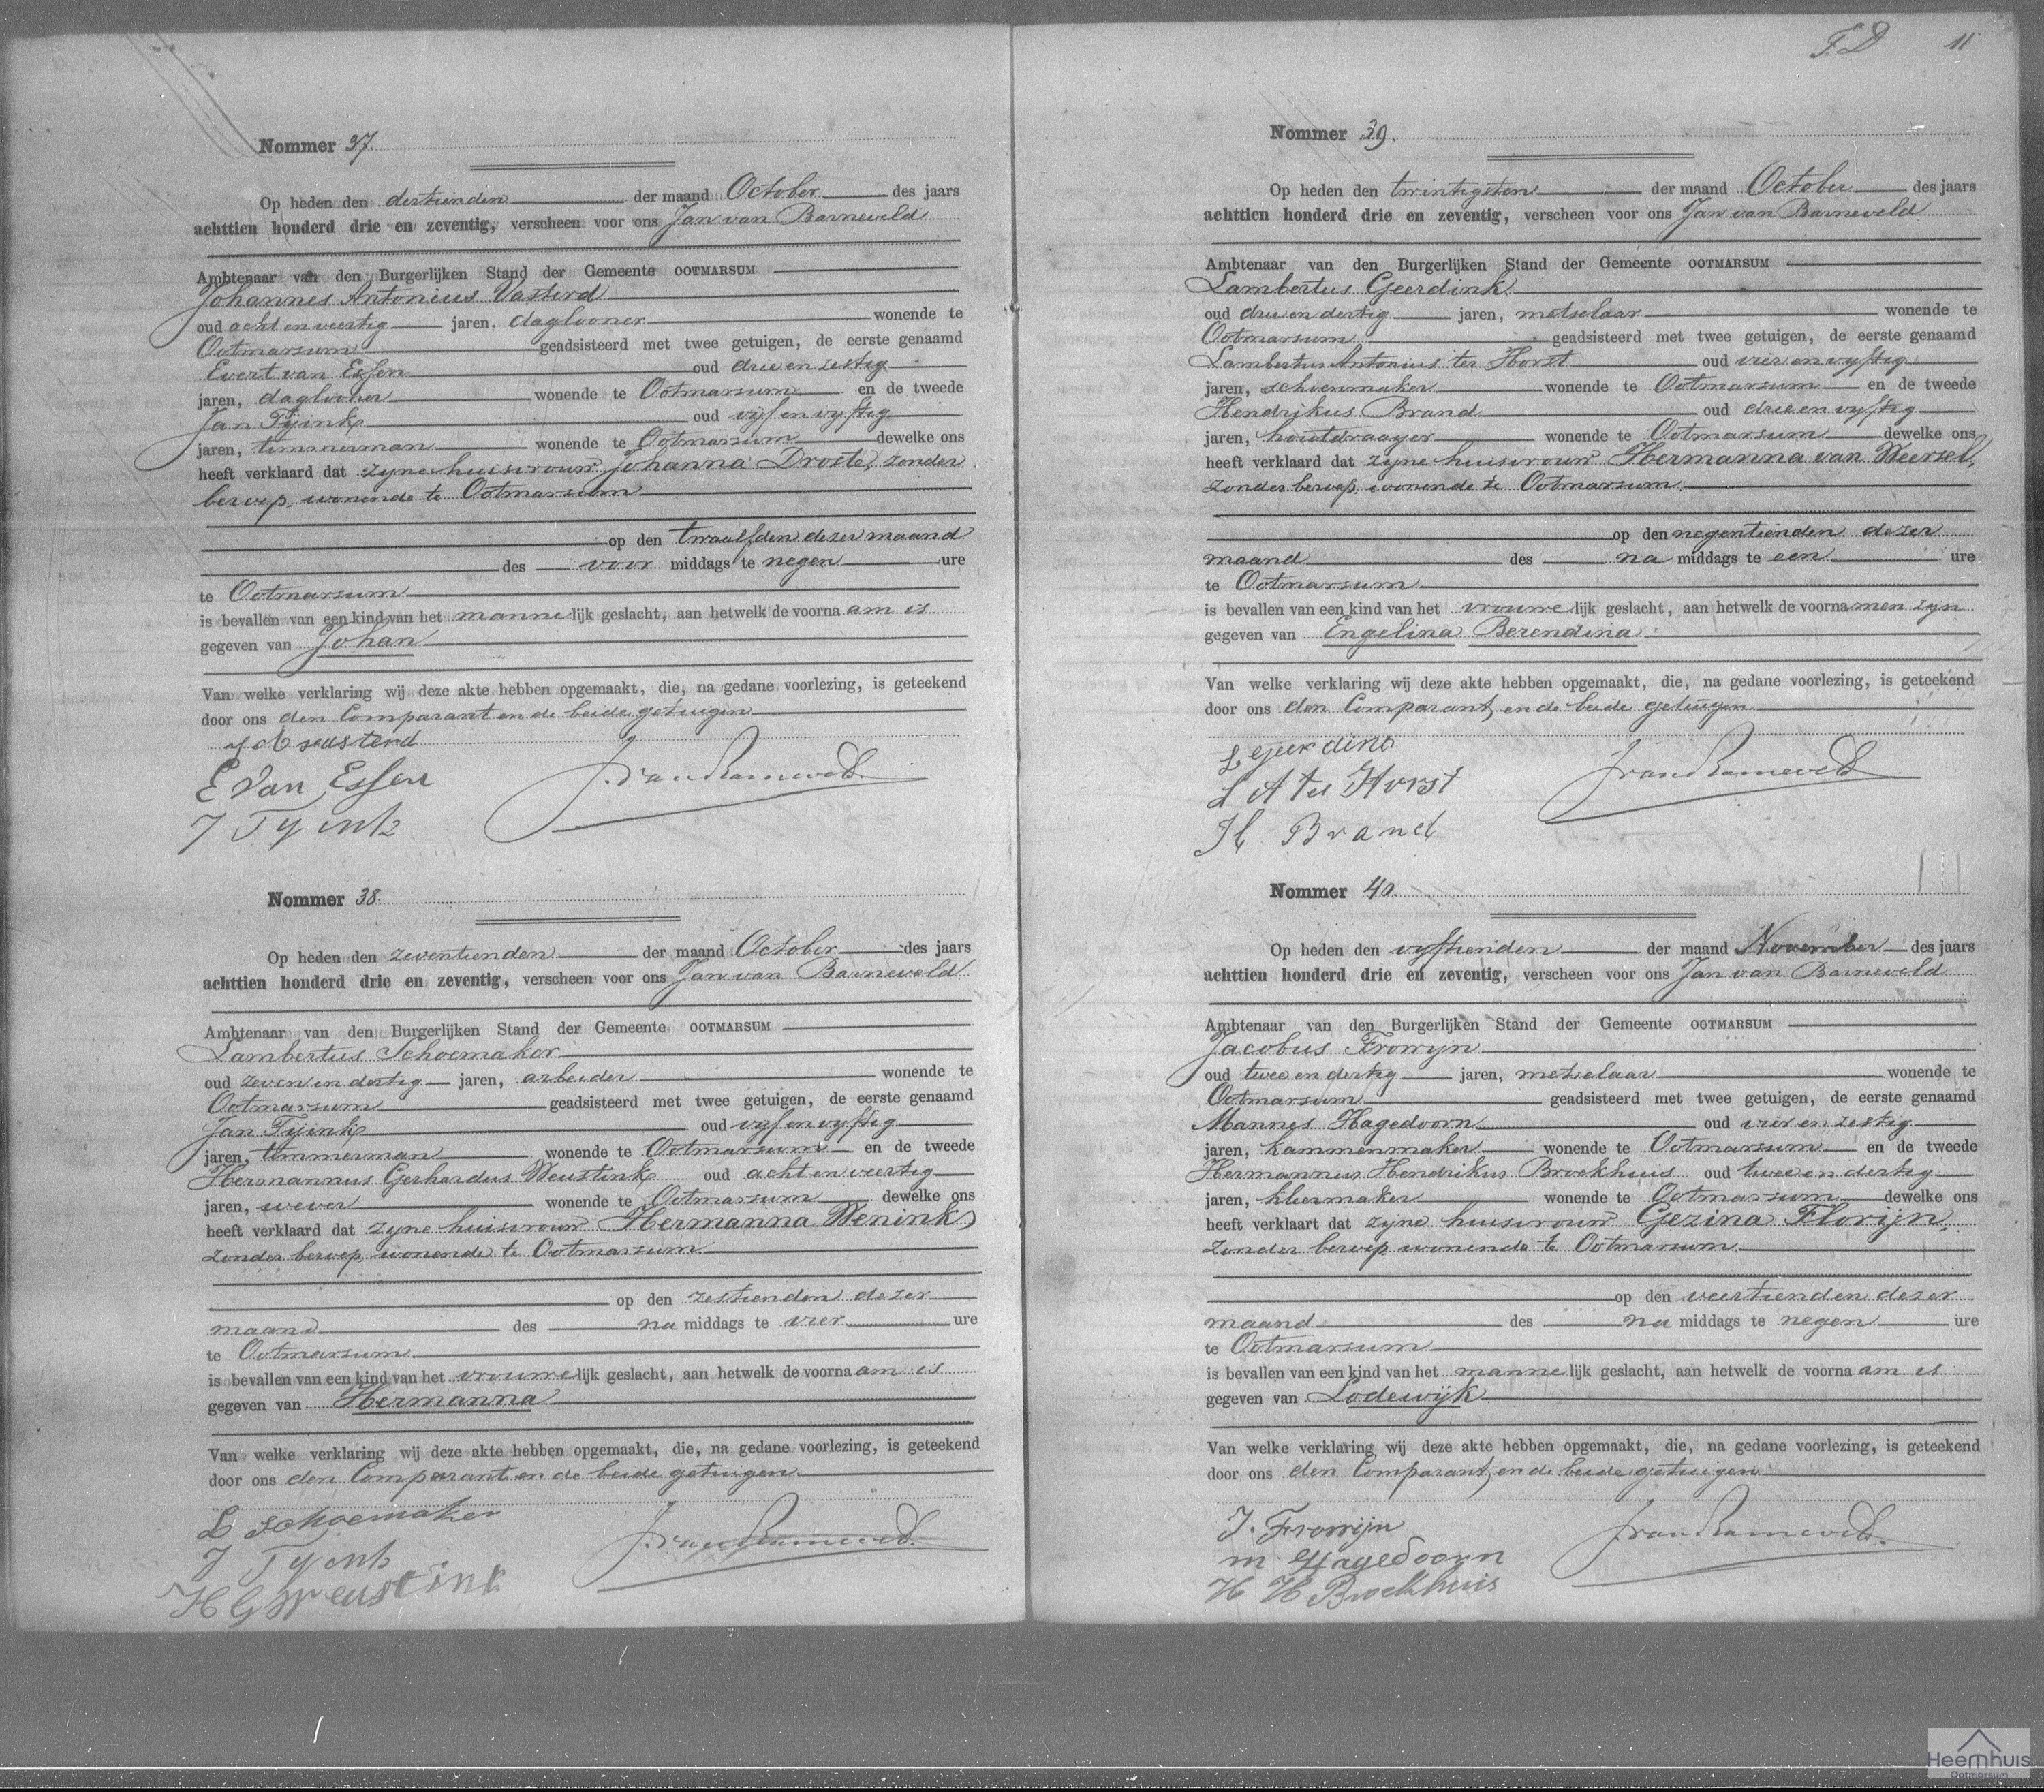 Nommer 37.
Op heden den dertienden der maand October des jaars
achttien honderd drie en zeventig, verscheen voor ons Jan van Barneveld
Ambtenaar van den Burgerlijken Stand der Gemeente OOTMARSUM
Johannes Antonius Vasterd
oud acht en veertig jaren. daglooner wonende te
Ootmarsum geadsisteerd met twee getuigen, de eerste genaamd
Evert van Essen oud drie en zestig
jaren, daglooner wonende te Ootmarsum en de tweede
Jan Tijink oud vijf en vyftig
jaren, timmerman wonende te Ootmarsum dewelke ons
heeft verklaard dat zyne huisvrouw Johanna Droste, zonder
beroep, wonende te Ootmarsum
op den twaalfden dezer maand
des voor middags te negen ure
te Ootmarsum
is bevallen van een kind van het mannelijk geslacht, aan hetwelk de voornaam is
gegeven van Johan
Van welke verklaring wij deze akte hebben opgemaakt, die, na gedane voorlezing, is geteekend
door ons den Comparant en de beide getuigen
J A vasterd
E van Essen
J van Barneveld
J Tyink
Nommer 38.
Op heden den zeventienden der maand October des jaars
achttien honderd drie en zeventig, verscheen voor ons Jan van Barneveld
Ambtenaar van den Burgerlijken Stand der Gemeente OOTMARSUM
Lambertus Schoemaker
oud zeven en dertig jaren, arbeider wonende te
Ootmarsum geadsisteerd met twee getuigen, de eerste genaamd
Jan Tijink oud vijf en vyftig
jaren, timmerman wonende te Ootmarsum en de tweede
Hermannus Gerhardus Weustink oud acht en veertig
jaren, wever wonende te Ootmarsum dewelke ons
heeft verklaard dat zyne huisvrouw Hermanna Wenink,
zonder beroep, wonende te Ootmarsum
op den zestienden dezer
maand des na middags te vier ure
te Ootmarsum
is bevallen van een kind van het vrouwelijk geslacht, aan hetwelk de voornaam is
gegeven van Hermanna
Van welke verklaring wij deze akte hebben opgemaakt, die, na gedane voorlezing, is geteekend
door ons den Comparant en de beide getuigen
L Schoemaker
J van Barneveld.
J Tyink
H G Weustink
F.D 11
Nommer 39.
Op heden den twintigsten der maand October des jaars
achttien honderd drie en zeventig, verscheen voor ons Jan van Barneveld
Ambtenaar van den Burgerlijken Stand der Gemeente OOTMARSUM
Lambertus Geerdink
oud drie en dertig jaren, metselaar wonende te
Ootmarsum geadsisteerd met twee getuigen, de eerste genaamd
Lambertus Antonius ter Horst oud vier en vyftig
jaren, schoenmaker wonende te Ootmarsum en de tweede
Hendrikus Brand oud drie en vyftig
jaren, houtdraayer wonende te Ootmarsum dewelke ons
heeft verklaard dat zyne huisvrouw Hermanna van Weersel,
zonder beroep, wonende te Ootmarsum
op den negentienden dezer
maand des na middags te een ure
te Ootmarsum
is bevallen van een kind van het vrouwelijk geslacht, aan hetwelk de voornamen zyn
gegeven van Engelina Berendina
Van welke verklaring wij deze akte hebben opgemaakt, die, na gedane voorlezing, is geteekend
door ons den Comparant, en de beide getuigen
L A ter Horst
J van Barneveld
H Brand
Nommer 40.
Op heden den vyftienden der maand November des jaars
achttien honderd drie en zeventig, verscheen voor ons Jan van Barneveld
Ambtenaar van den Burgerlijken Stand der Gemeente OOTMARSUM
Jacobus Frowyn
oud twee en dertig jaren, metselaar wonende te
Ootmarsum geadsisteerd met twee getuigen, de eerste genaamd
Mannes Hagedoorn oud vier en zestig
jaren, kammenmaker wonende te Ootmarsum en de tweede
Hermannus Hendrikus Broekhuis oud twee en dertig
jaren, kleermaker wonende te Ootmarsum dewelke ons
heeft verklaart dat zyne huisvrouw Gezina Florijn,
zonder beroep wonende te Ootmarsum
op den veertienden dezer
maand des na middags te negen ure
te Ootmarsum
is bevallen van een kind van het mannelijk geslacht, aan hetwelk de voornaam is
gegeven van Lodewijk
Van welke verklaring wij deze akte hebben opgemaakt, die, na gedane voorlezing, is geteekend
door ons den Comparant, en de beide getuigen
J. Frowijn
J van Barneveld.
m Hagedoorn
H H Broekhuis
Heemhuis
Ootmarsum